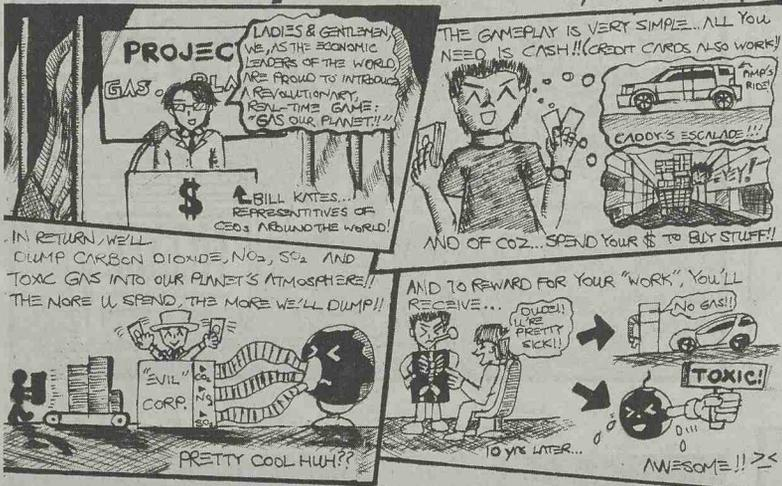 PROJEC
GAS. PLA
LADIES & GENTLEMEN,
WE, AS THE ECONOMIC
LEADERS OF THE WORLD,
ARE PROUD TO INTRODUCE
A REVOLUTIONARY,
REAL-TIME GAME:
"GAS OUR PLANET!!"
$
BILL KATES...
REPRESENTITIVES OF
CEOs AROUND THE WORLD!
THE GAMEPLAY IS VERY SIMPLE... ALL YOU
NEED IS CASH!! (CREDIT CARDS ALSO WORK!!
PIMP'S
RIDE!
CADDY'S ESCALADE!!!
EYEY!
AND OF COZ... SPEND YOUR $ TO BUY STUFF!!
IN RETURN, WE'LL
DUMP CARBON DIOXIDE, NO2, SO2 AND
TOXIC GAS INTO OUR PLANET'S ATMOSPHERE!!
THE MORE U SPEND, THE MORE WE'LL DUMP!!
"EVIL"
CORP.
PRETTY COOL HUH??
AND TO REWARD FOR YOUR "WORK", YOU'LL
RECEIVE...
DUDE!!
U'RE
PRETTY
SICK!!
10 yrs LATER...
NO GAS!!
TOXIC!
AWESOME!! ><